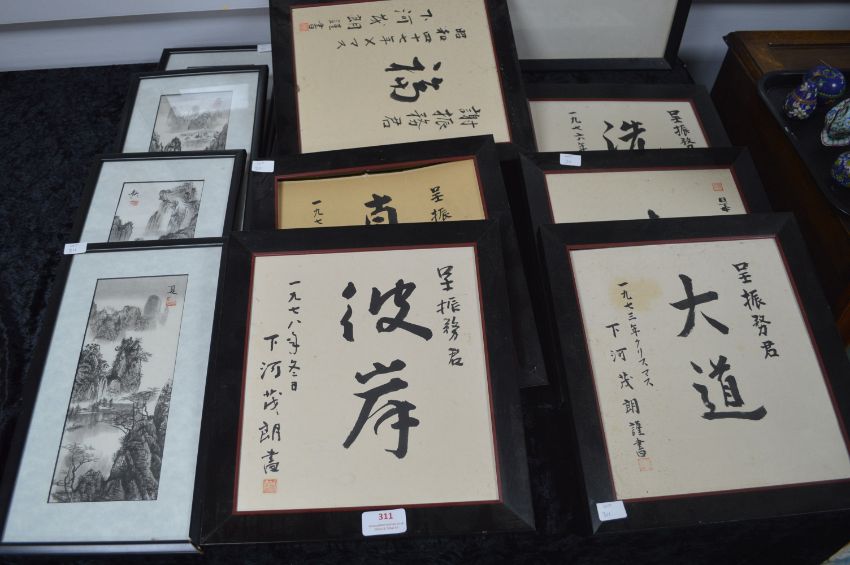 昭和四十七年Xマス
下河茂朗謹書
福
謝振務君
呈振務君
洗
一九七六年
呈振
直
一九七
日
呈振務君
彼岸
一九七八年冬日
下河茂朗書
呈振務君
大道
一九七三年クリスマス
下河茂朗謹書
夏
311
311